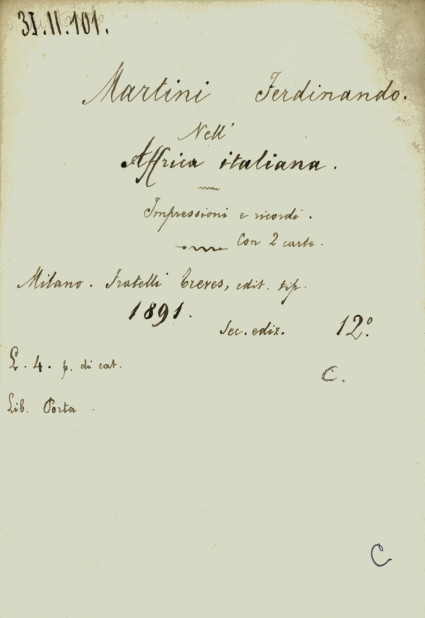 31.11.101.
Martini Ferdinando.
Nell'
Affrica italiana.
Impressioni e ricordi.
Con 2 carte.
Milano. Fratelli Treves, edit. tip.
1891.
Sec. ediz. 12º
L. 4. p. di cat.
C.
Lib. Porta.
C